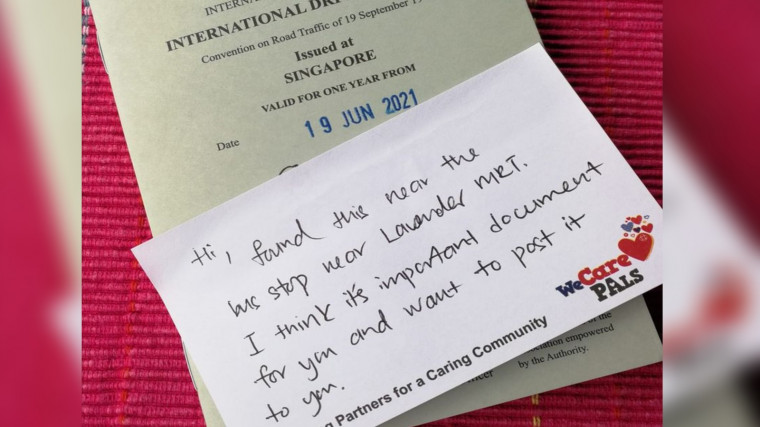 INTERNA
INTERNATIONAL DRI
Convention on Road Traffic of 19 September 19
Issued at
SINGAPORE
VALID FOR ONE YEAR FROM
Date 19 JUN 2021
Hi, found this near the
bus stop near Lavender MRT.
I think it's important document
for you and want to post it
to you.
WeCare
PALS
g Partners for a Caring Community
of the
ociation empowered
by the Authority.